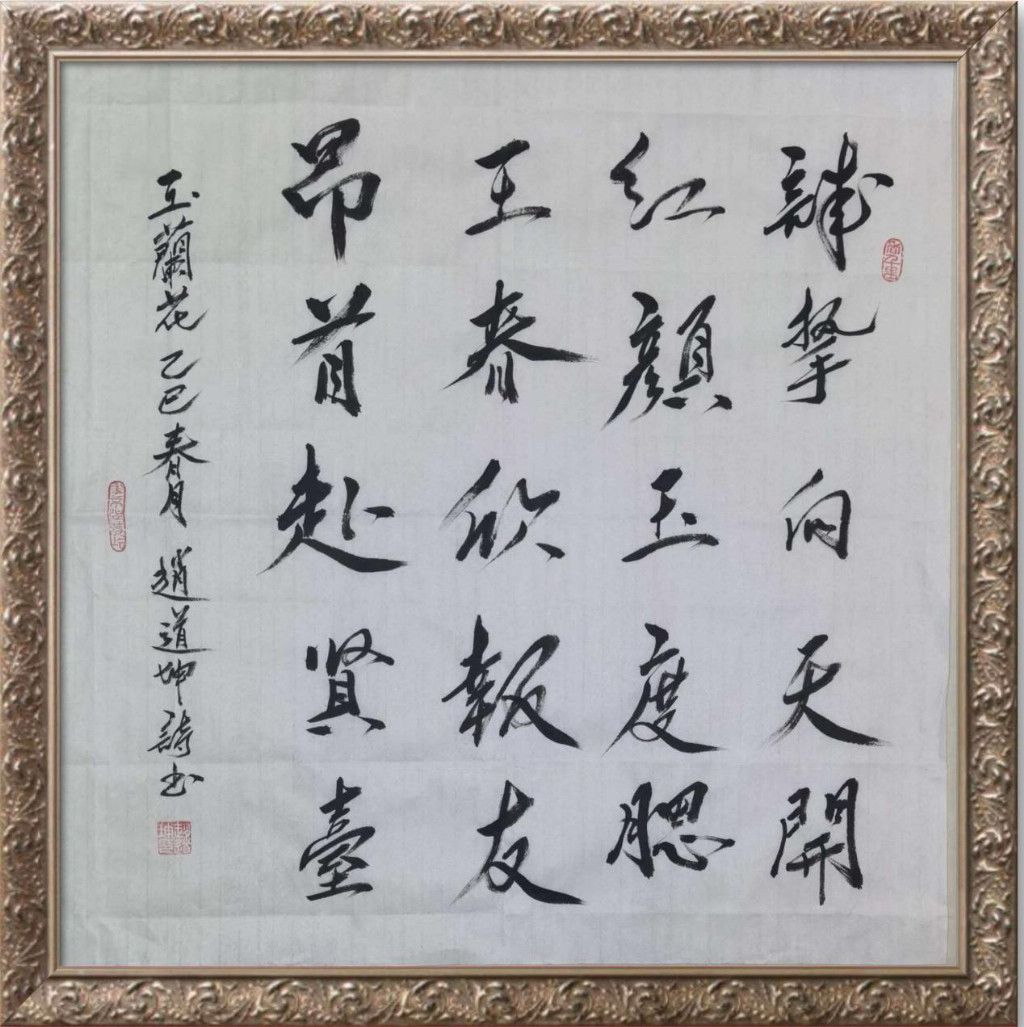 誠摯向天開
紅顏玉度腮
王春欣報友
昂首赴賢臺
玉蘭花 乙巳春月 趙道坤詩書